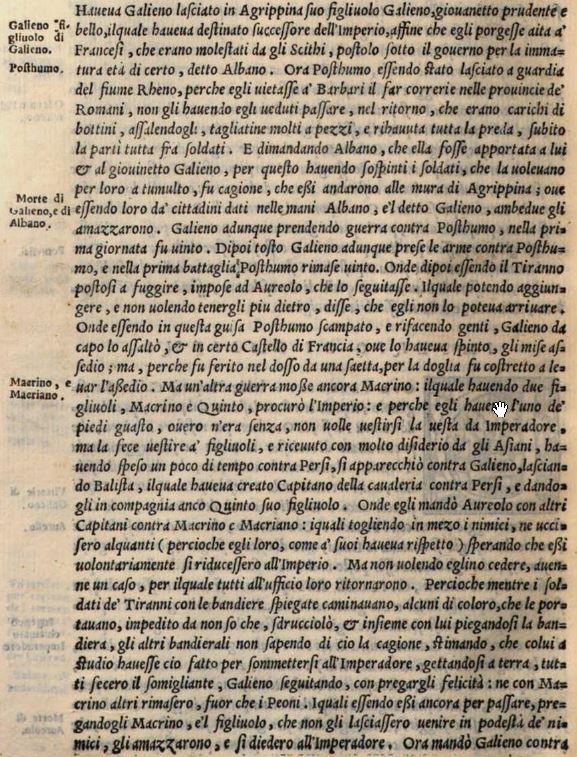 Haueua Galieno lasciato in Agrippina suo figliuolo Galieno, giouanetto prudente e
Galieno fi=
gliuolo di
Galieno.
bello, ilquale haueua destinato successore dell'Imperio, affine che egli porgesse aita a'
Francesi, che erano molestati da gli Scithi, postolo sotto il gouerno per la imma=
Posthumo.
tura età di certo, detto Albano. Ora Posthumo essendo stato lasciato a guardia
del fiume Rheno, perche egli uietasse a' Barbari il far correrie nelle prouincie de'
Romani, non gli hauendo egli ueduti passare, nel ritorno, che erano carichi di
bottini, assalendogli, tagliatine molti a pezzi, e rihauuta tutta la preda, subito
la parti tutta fra soldati. E dimandando Albano, che ella fosse apportata a lui
& al giouinetto Galieno, per questo hauendo sospinti i soldati, che la uoleuano
per loro a tumulto, fu cagione, che essi andarono alle mura di Agrippina; oue
Morte di
Galieno, e di
Albano.
essendo loro da' cittadini dati nelle mani Albano, e'l detto Galieno, ambedue gli
amazzarono. Galieno adunque prendendo guerra contra Posthumo, nella pri=
ma giornata fu uinto. Dipoi tosto Galieno adunque prese le arme contra Posthu=
mo, e nella prima battaglia Posthumo rimase uinto. Onde dipoi essendo il Tiranno
postosi a fuggire, impose ad Aureolo, che lo seguitasse. Ilquale potendo aggiun=
gere, e non uolendo tenergli piu dietro, disse, che egli non lo poteua arriuare.
Onde essendo in questa guisa Posthumo scampato, e rifacendo genti, Galieno da
capo lo assaltò, & in certo Castello di Francia, oue lo haueua spinto, gli mise as=
sedio; ma, perche fu ferito nel dosso da una saetta, per la doglia fu costretto a le=
Macrino, e
Macriano.
uar l'assedio. Ma un'altra guerra mosse ancora Macrino: ilquale hauendo due fi=
gliuoli, Macrino e Quinto, procurò l'Imperio: e perche egli haueua l'uno de'
piedi guasto, ouero n'era senza, non uolle uestirsi la uesta da Imperadore,
ma la fece uestire a' figliuoli, e riceuuto con molto disiderio da gli Asiani, ha=
uendo speso un poco di tempo contra Persi, si apparecchiò contra Galieno, lascian=
do Balista, ilquale haueua creato Capitano della caualeria contra Persi, e dando=
gli in compagnia anco Quinto suo figliuolo. Onde egli mandò Aureolo con altri
Capitani contra Macrino e Macriano: iquali togliendo in mezo i nimici, ne ucci=
sero alquanti (percioche egli loro, come a' suoi haueua rispetto) sperando che essi
uolontariamente si riducessero all'Imperio. Ma non uolendo eglino cedere, auen=
ne un caso, per ilquale tutti all'ufficio loro ritornarono. Percioche mentre i sol=
dati de' Tiranni con le bandiere spiegate caminauano, alcuni di coloro, che le por=
tauano, impedito da non so che, sdrucciolò, & insieme con lui piegandosi la ban=
diera, gli altri bandierali non sapendo di cio la cagione, stimando, che colui a
studio hauesse cio fatto per sommettersi all'Imperadore, gettandosi a terra, tut=
ti fecero il somigliante, Galieno seguitando, con pregargli felicità: ne con Ma=
crino altri rimasero, fuor che i Peoni. Iquali essendo essi ancora per passare, pre=
gandogli Macrino, e'l figliuolo, che non gli lasciassero uenire in podestà de' ni=
mici, gli amazzarono, e si diedero all'Imperadore. Ora mandò Galieno contra